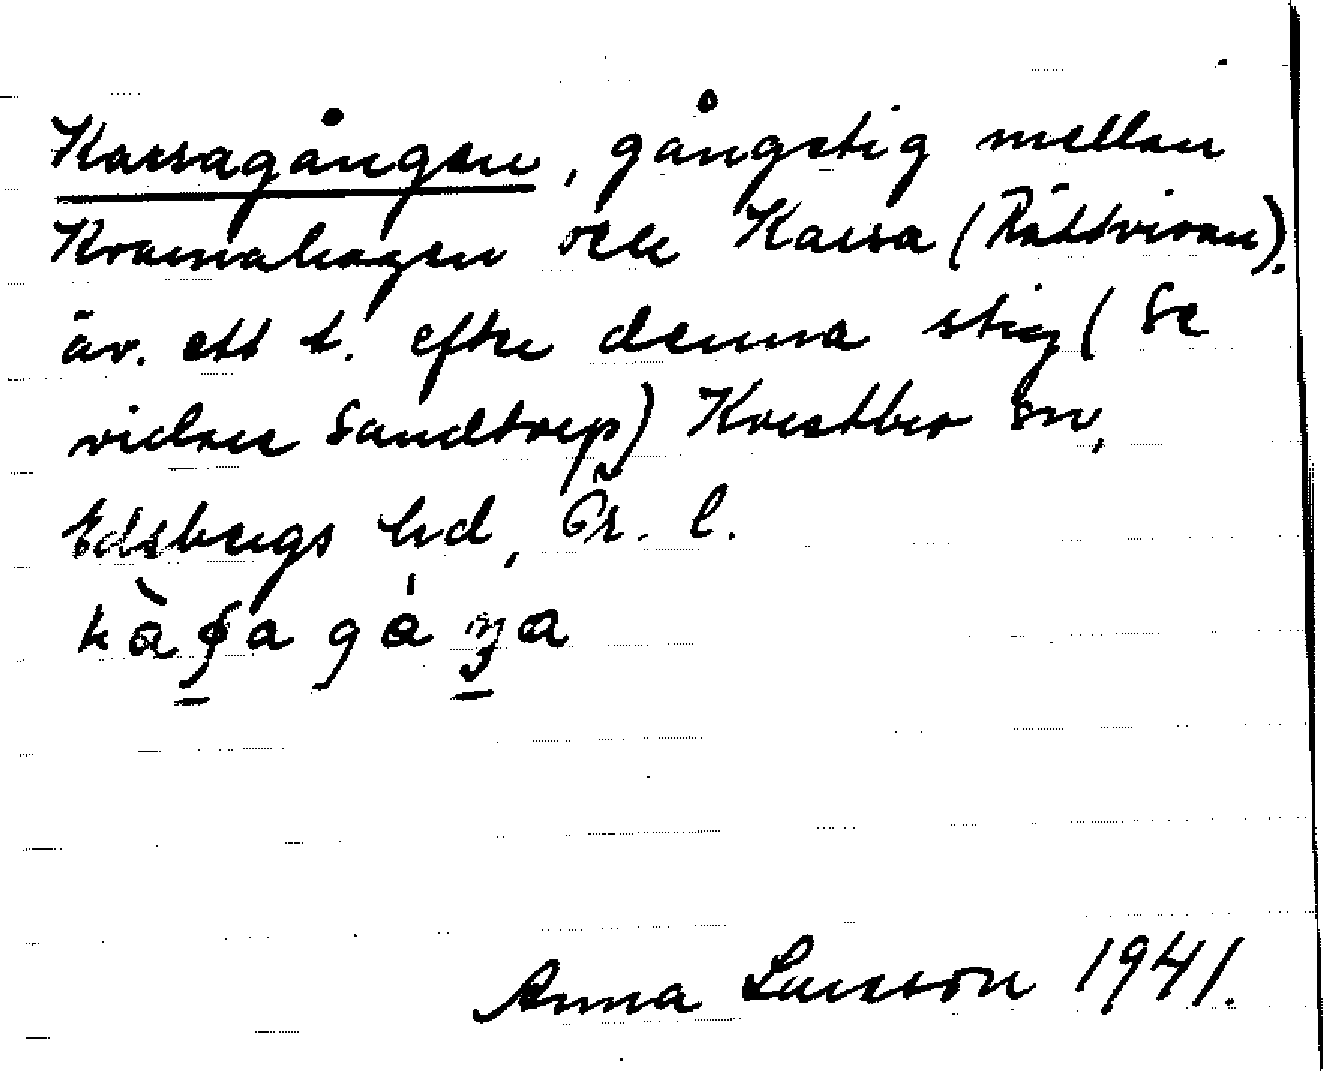 Karsagången, gångstig mellan
Kramahagen och Karsa (Rättviran).
äv. ett t. efter denna stig (Se
vidare Sandtorp) Kvistbro sn,
Edsbergs hd, Ör. l.
Anna Larsson 1941.